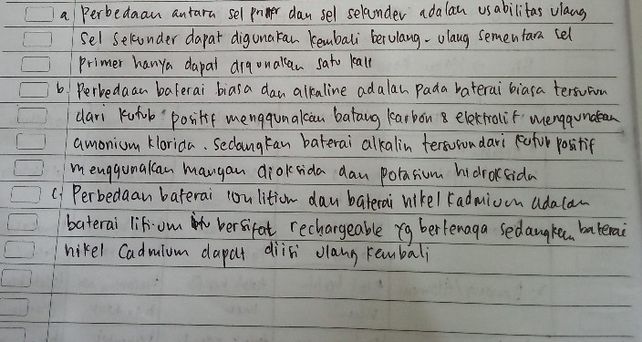 a) Perbedaan antara sel primer dan sel sekunder adalah usabilitas ulang
Sel Sekunder dapat digunakan kembali berulang-ulang sementara sel
Primer hanya dapat digunakan satu kali
b) Perbedaan baterai biasa dan alkaline adalah pada baterai biasa tersusun
dari kutub positif menggunakan batang karbon & elektrolit menggunakan
amonium klorida. Sedangkan baterai alkalin tersusun dari kutub positif
menggunakan mangan dioksida dan potasium hidroksida
c) Perbedaan baterai ion litium dan baterai nikel kadmium adalah
baterai litium bersifat rechargeable yg bertenaga sedangkan baterai
nikel Cadmium dapat diisi ulang kembali